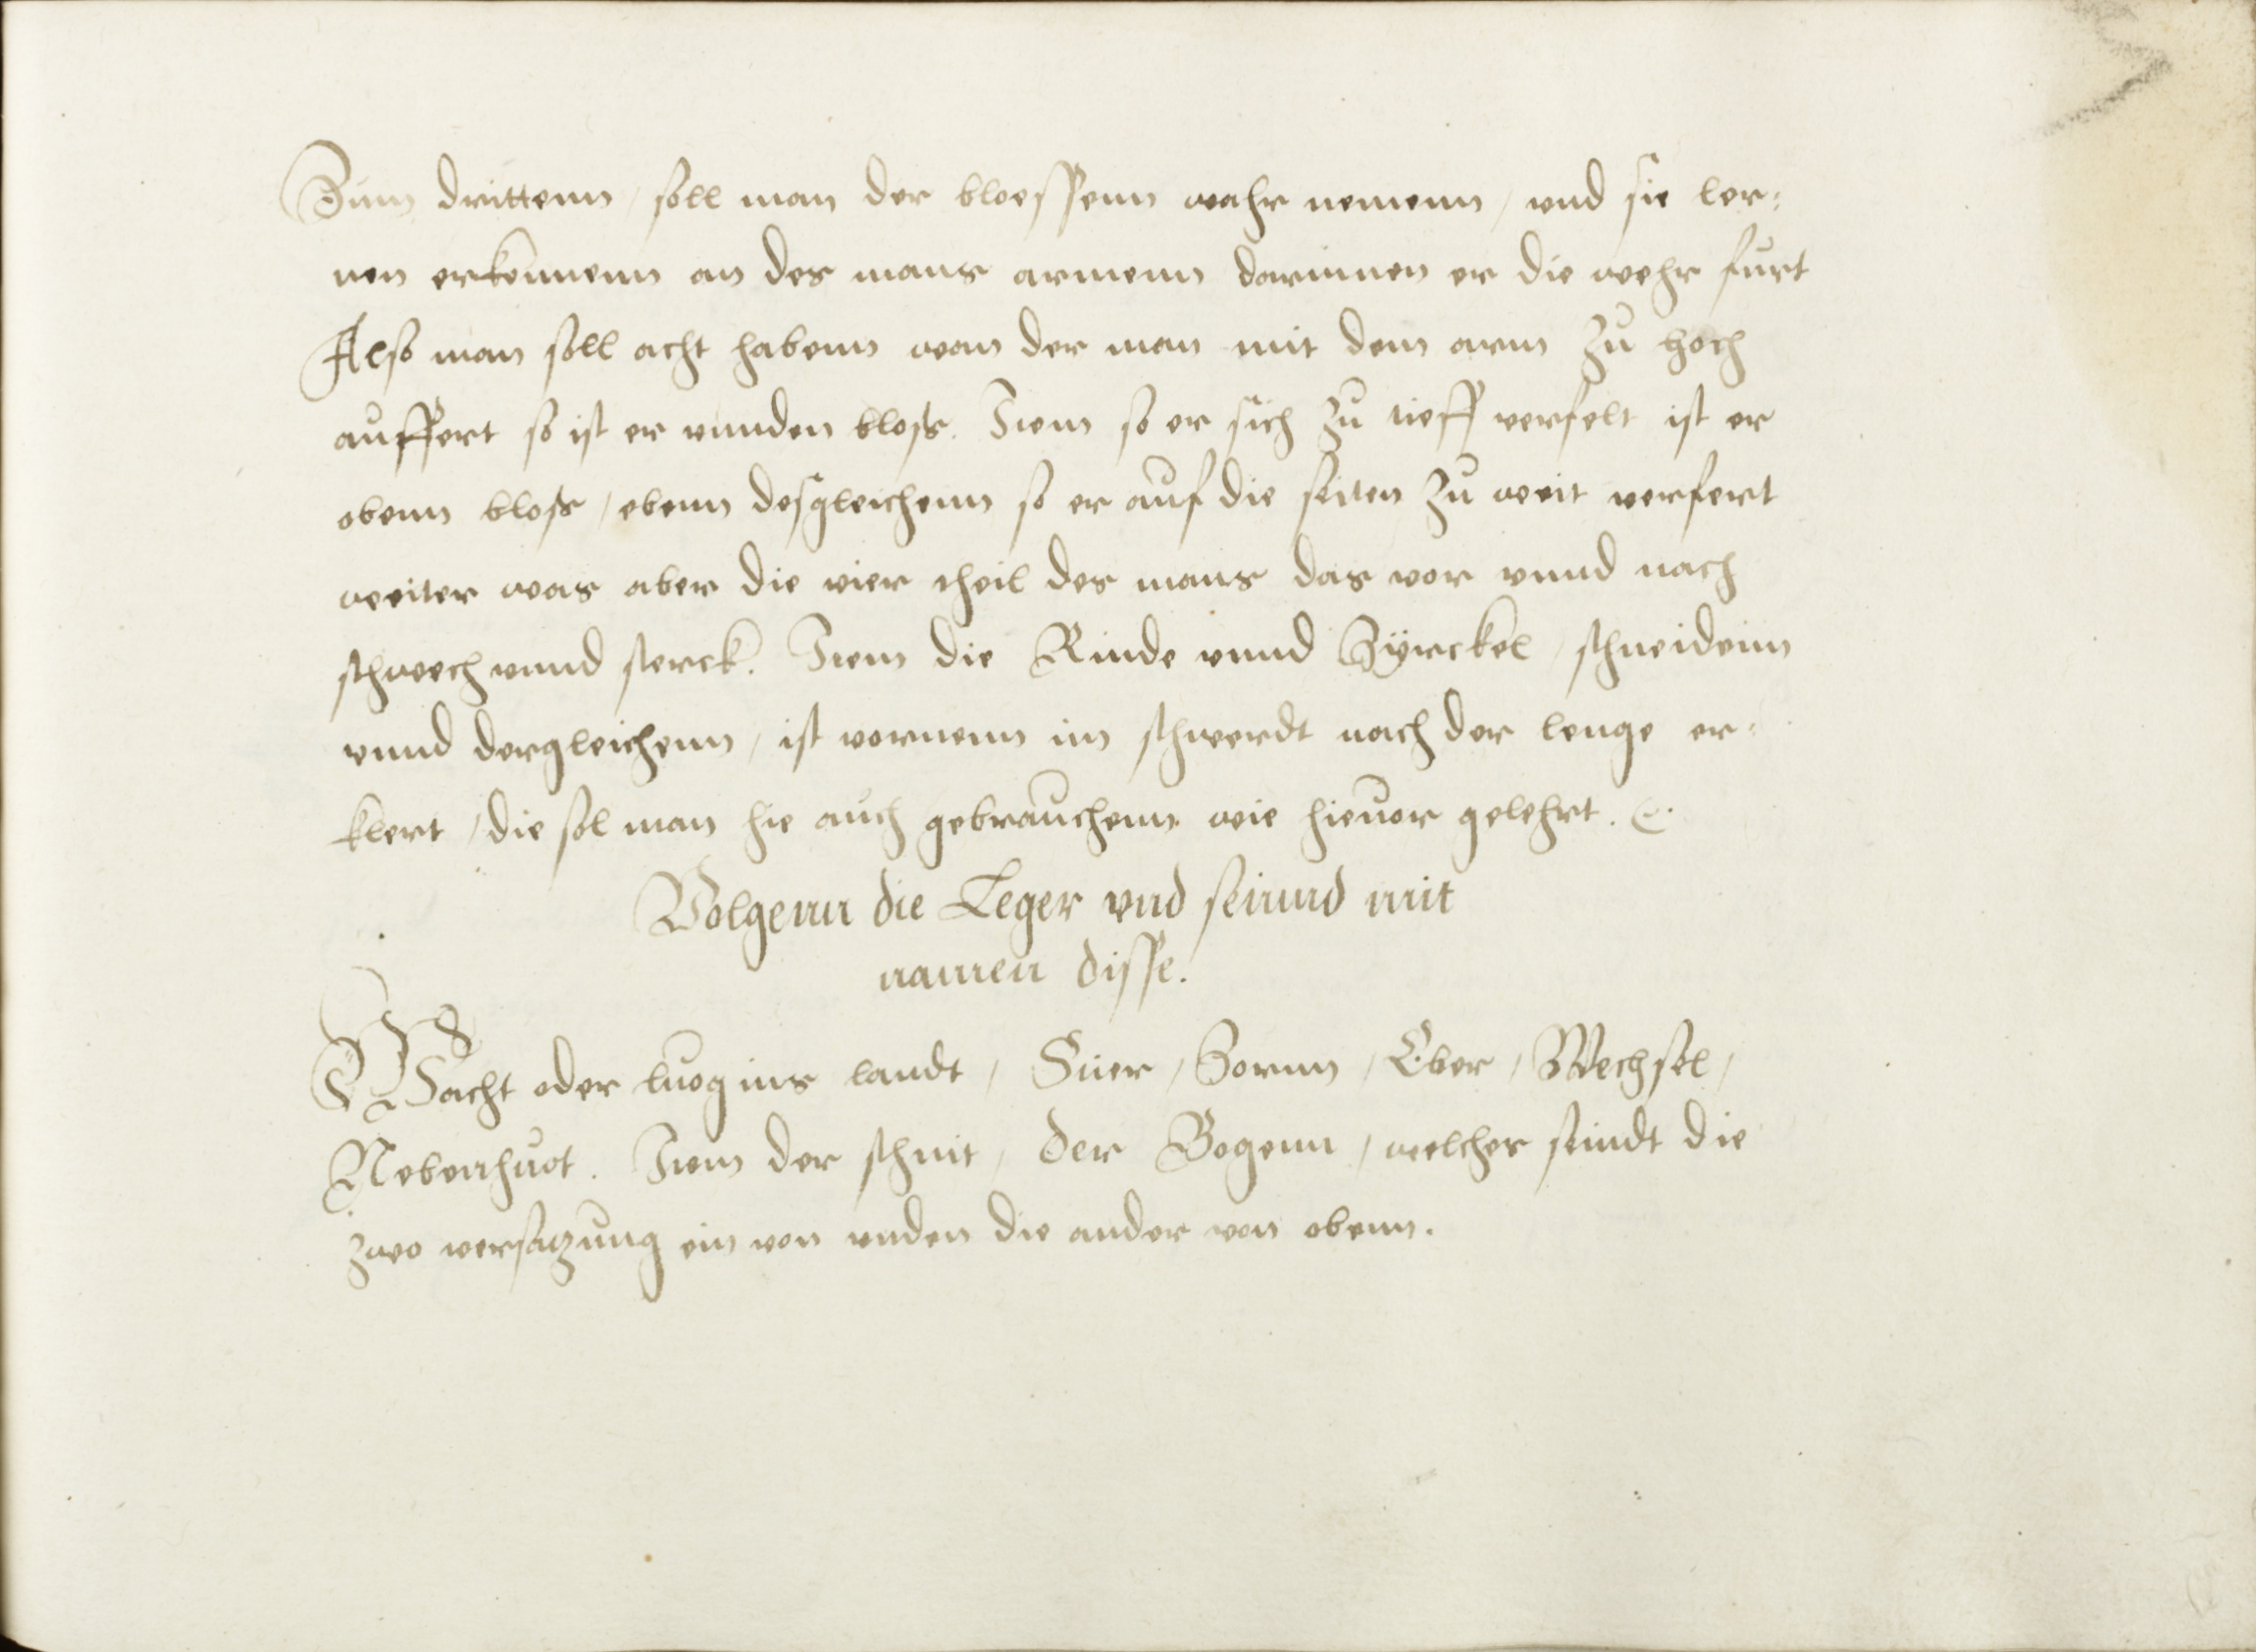 Zum drittenn / soll man der bloessenn wahr nemenn / vnd sie ler=
nen erkennenn an des mans armenn darinnen er die wehr furt
Also man soll acht habenn wan der man mit dem arm zu hoch
auffert so ist er vnnden bloss. Item so er sich zu tieff verfelt ist er
obenn bloss / ebenn desgleichenn so er auf die seiten zu weit verfert
weiter was aber die vier theil des mans das vor vnnd nach
schwech vnnd sterck. Item die Rinde vnnd Zÿrckel / schneidenn
vnnd dergleichenn / ist vornenn im schwerdt nach der lenge er=
klert / die sol man hie auch gebrauchenn wie hieuor gelehrt.
Volgenn die Leger vnd seinnd mit
namen disse.
Wacht oder luog ins landt / Stier / Zornn / Eber / Wechsel /
Nebenhuot. Item der schnit / der Bogenn / welcher seindt die
zwo versatzung ein von vnden die ander von obenn.